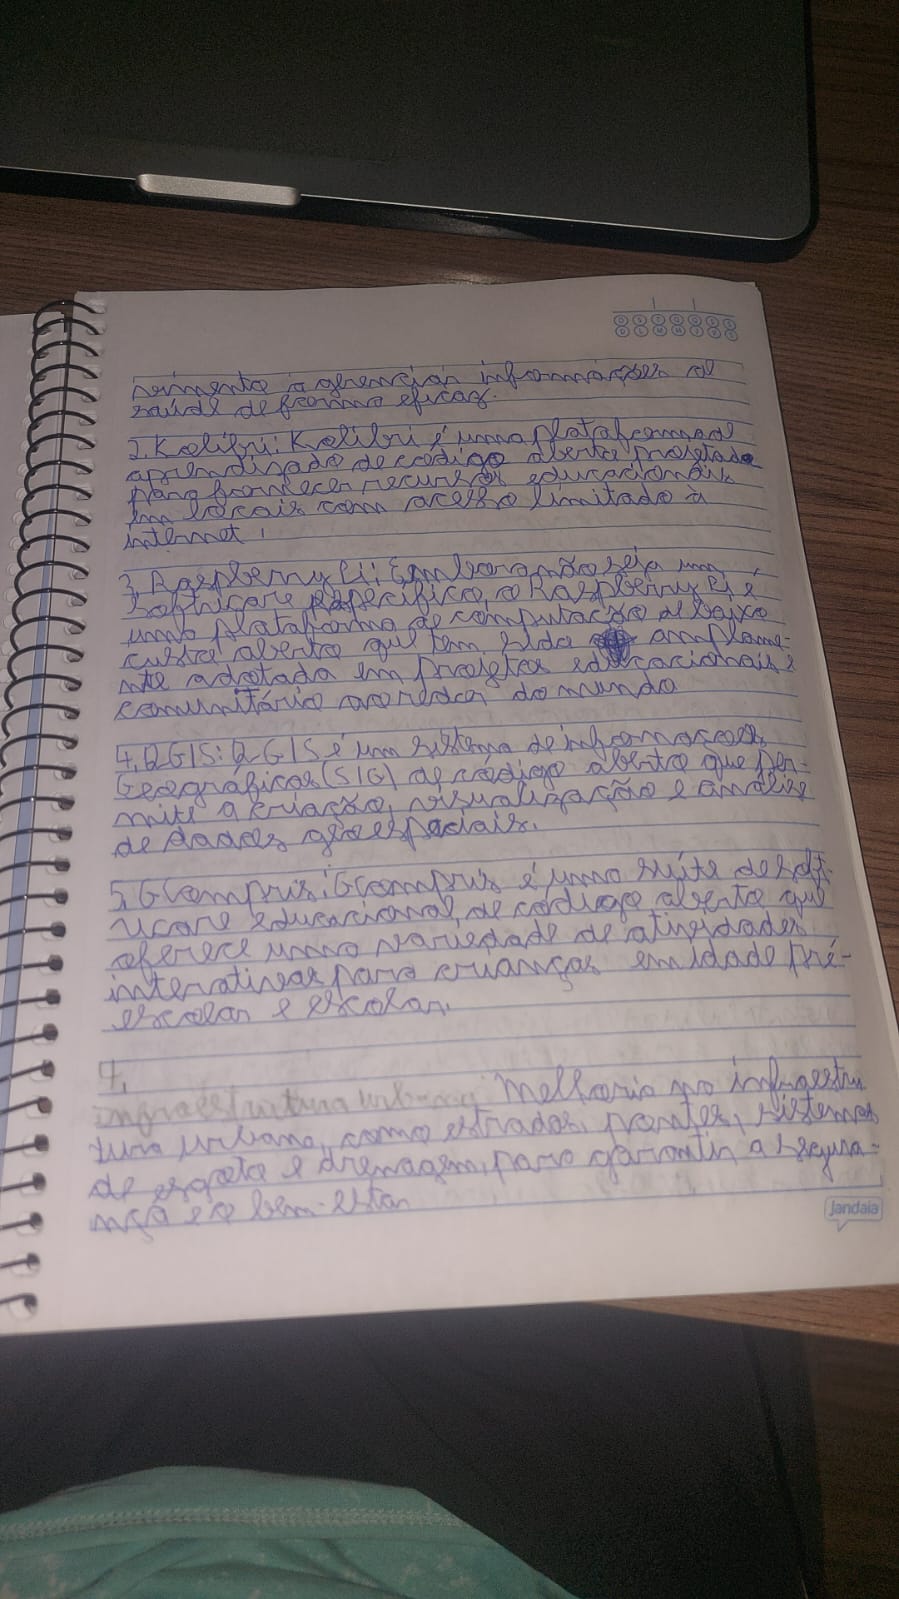 vimento a gerenciar informações de
saúde de forma eficaz.
2. Kolibri: Kolibri é uma plataforma de
aprendizado de código aberto projetada
para fornecer recursos educacionais
em locais com acesso limitado à
internet.
3, Raspberry Pi: Embora não seja um
software específico, o Raspberry Pi é
uma plataforma de computação de baixo
custo aberta que tem sido amplame-
nte adotada em projetos educacionais e
comunitário ao redor do mundo
4, QGIS: QGIS é um sistema de informações
Geográficas (SIG) de código aberto que per-
mite a criação, visualização e análise
de dados geoespaciais.
5, GCompris: GCompris é uma suíte de soft-
ware educacional de código aberto que
oferece uma variedade de atividades
interativas para crianças em idade pré-
escolar e escolar.
4,
infraestrutura urbana: Melhoria na infraestru
tura urbana, como estradas, pontes, sistemas
de esgoto e drenagem, para garantir a segura-
nça e o bem-estar
Jandaia